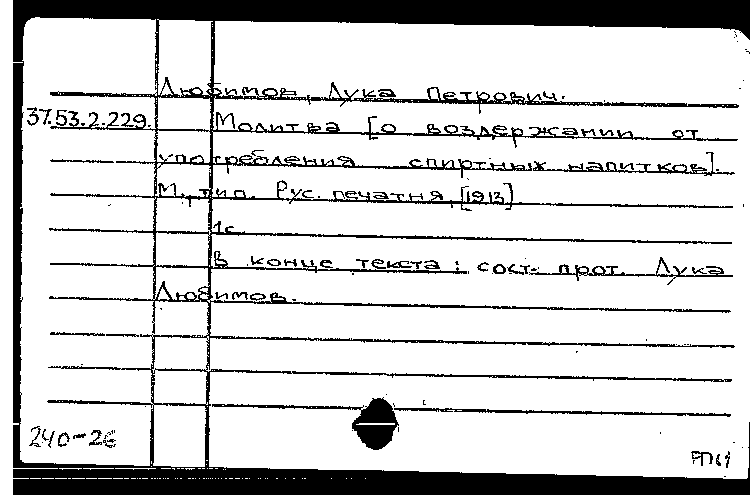 Любимов, Лука Петрович.
37.53.2.229. Молитва [о воздержании от
употребления спиртных напитков].
М., тип. Рус. печатня, [1913]
1с.
В конце текста: сост. прот. Лука
Любимов.
240-26